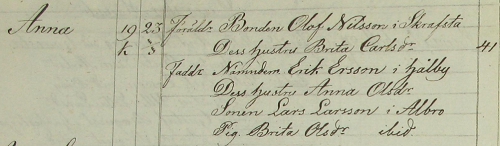 Anna 19 23 Föräldr: Bonden Olof Nilsson i Skrafsta
k 3 Dess hustru Brita Carlsdr. 41
Faddr Nämndem. Erik Ersson i Hjälby
Dess hustru Anna Olsdr.
Sonen Lars Larsson i Albro
Pig. Brita Olsdr ibid